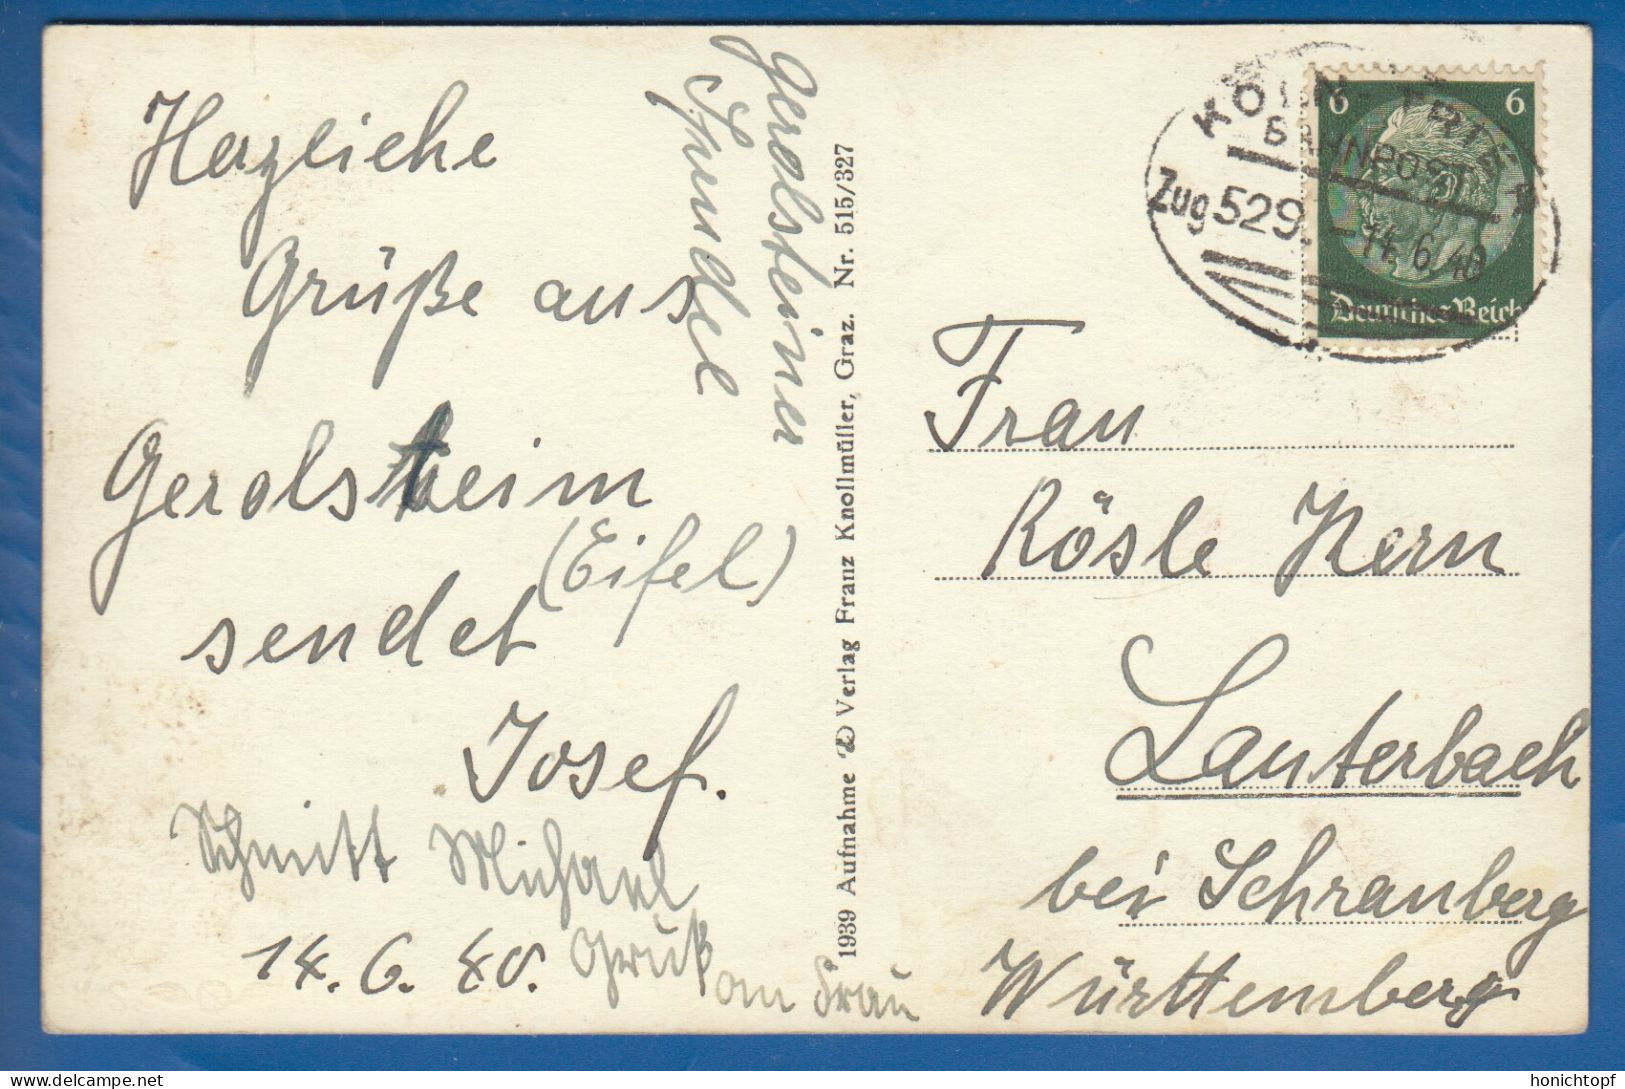 Herzliche
Grüße aus
Gerolstein
(Eifel)
sendet
Josef.
Schmitt Michael
14.6.40. Gruß
an Frau
Gerolsteiner
Sprudel
1939 Aufnahme Verlag Franz Knollmüller, Graz. Nr. 515/327
KÖLN - TRIER
BAHNPOST
Zug 529. -14.6.40
6 6
Deutsches Reich
Frau
Rösle Kern
Lauterbach
bei Schramberg
Württemberg
honichtopf